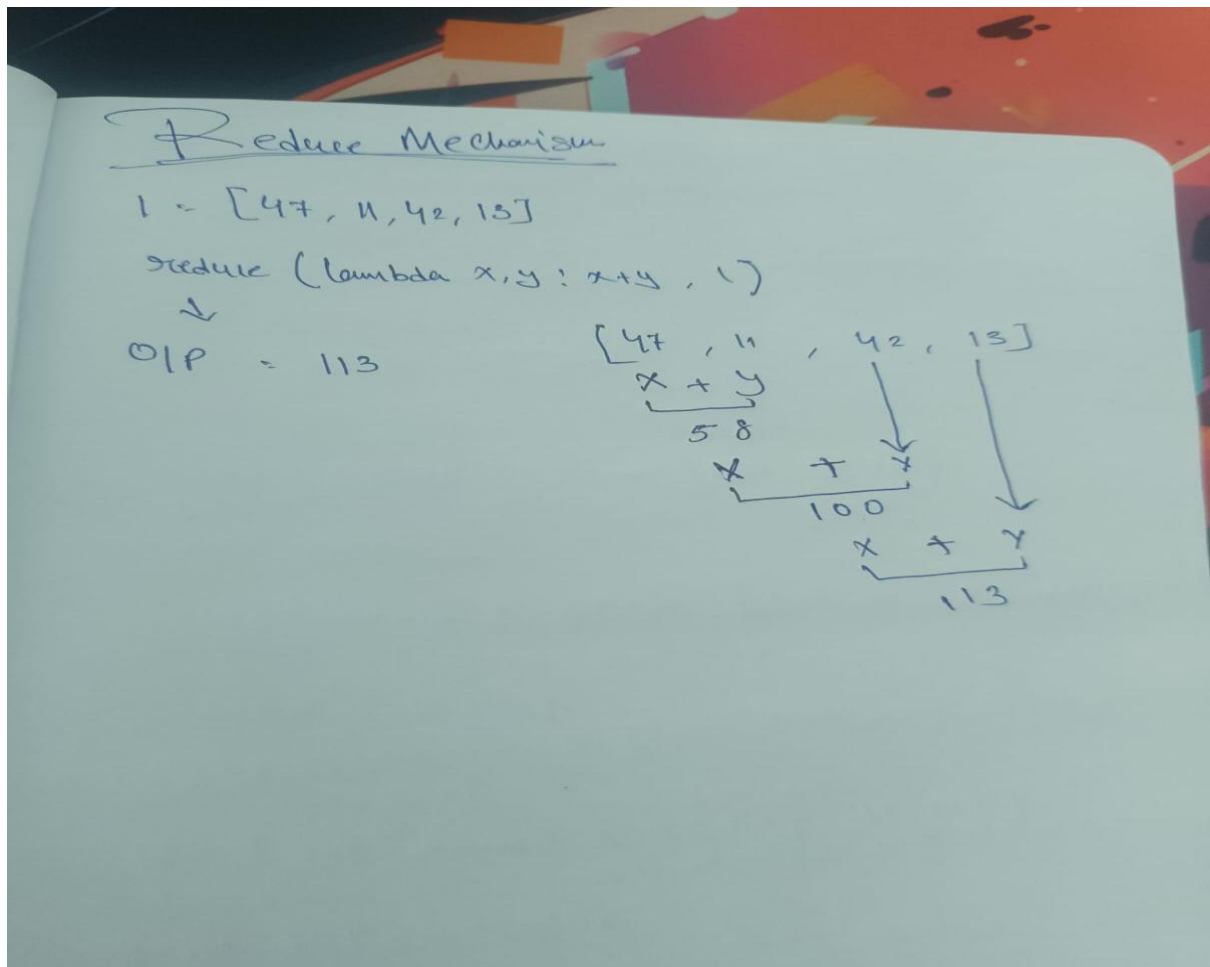 Reduce Mechanism
l = [47, 11, 42, 13]
reduce (lambda x,y : x+y , l)
↓
O/P = 113
[47 , 11 , 42 , 13]
x + y
58
x + y
100
x + y
113